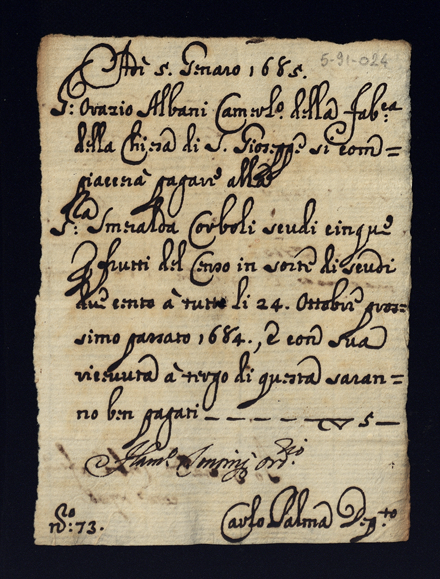 Adì 5. Genaro 1685.
5-91-024
S.r Orazio Albani Camerl.o della fab.ca
della Chiesa di S. Gioseppe si com=
piacerà pagare alla
S.ra Smeralda Corboli scudi cinque
p frutti del Censo in sorte di scudi
due cento à tutto li 24. Ottobre pros=
simo passato 1684., e con sua
ricevuta à tergo di questa saran=
no ben pagati — — — — — 5 —
N.o: 73.
Carlo Palma Dep.to